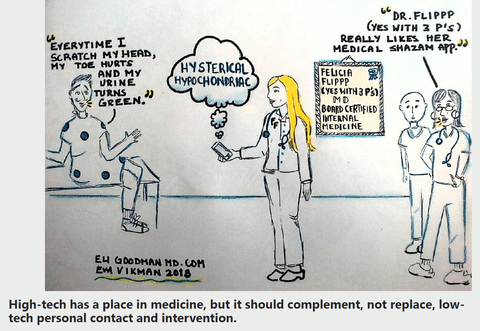 "EVERYTIME I
SCRATCH MY HEAD,
MY TOE HURTS
AND MY
URINE
TURNS
GREEN."
HYSTERICAL
HYPOCHONDRIAC
FELICIA
FLIPPP
(YES WITH 3 P'S)
MD
BOARD CERTIFIED
INTERNAL
MEDICINE
"DR. FLIPPP
(YES WITH 3 P'S)
REALLY LIKES HER
MEDICAL SHAZAM APP."
FF
EH GOODMAN MD.COM
EVA VIKMAN 2018
High-tech has a place in medicine, but it should complement, not replace, low-
tech personal contact and intervention.